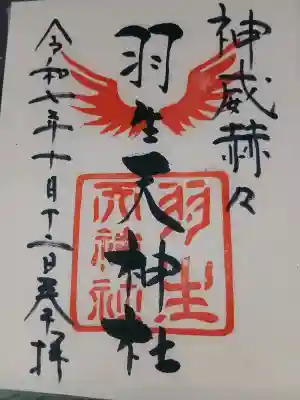 神威赫々
羽生天神社
令和七年十月十二日奉拝
羽生
天神社